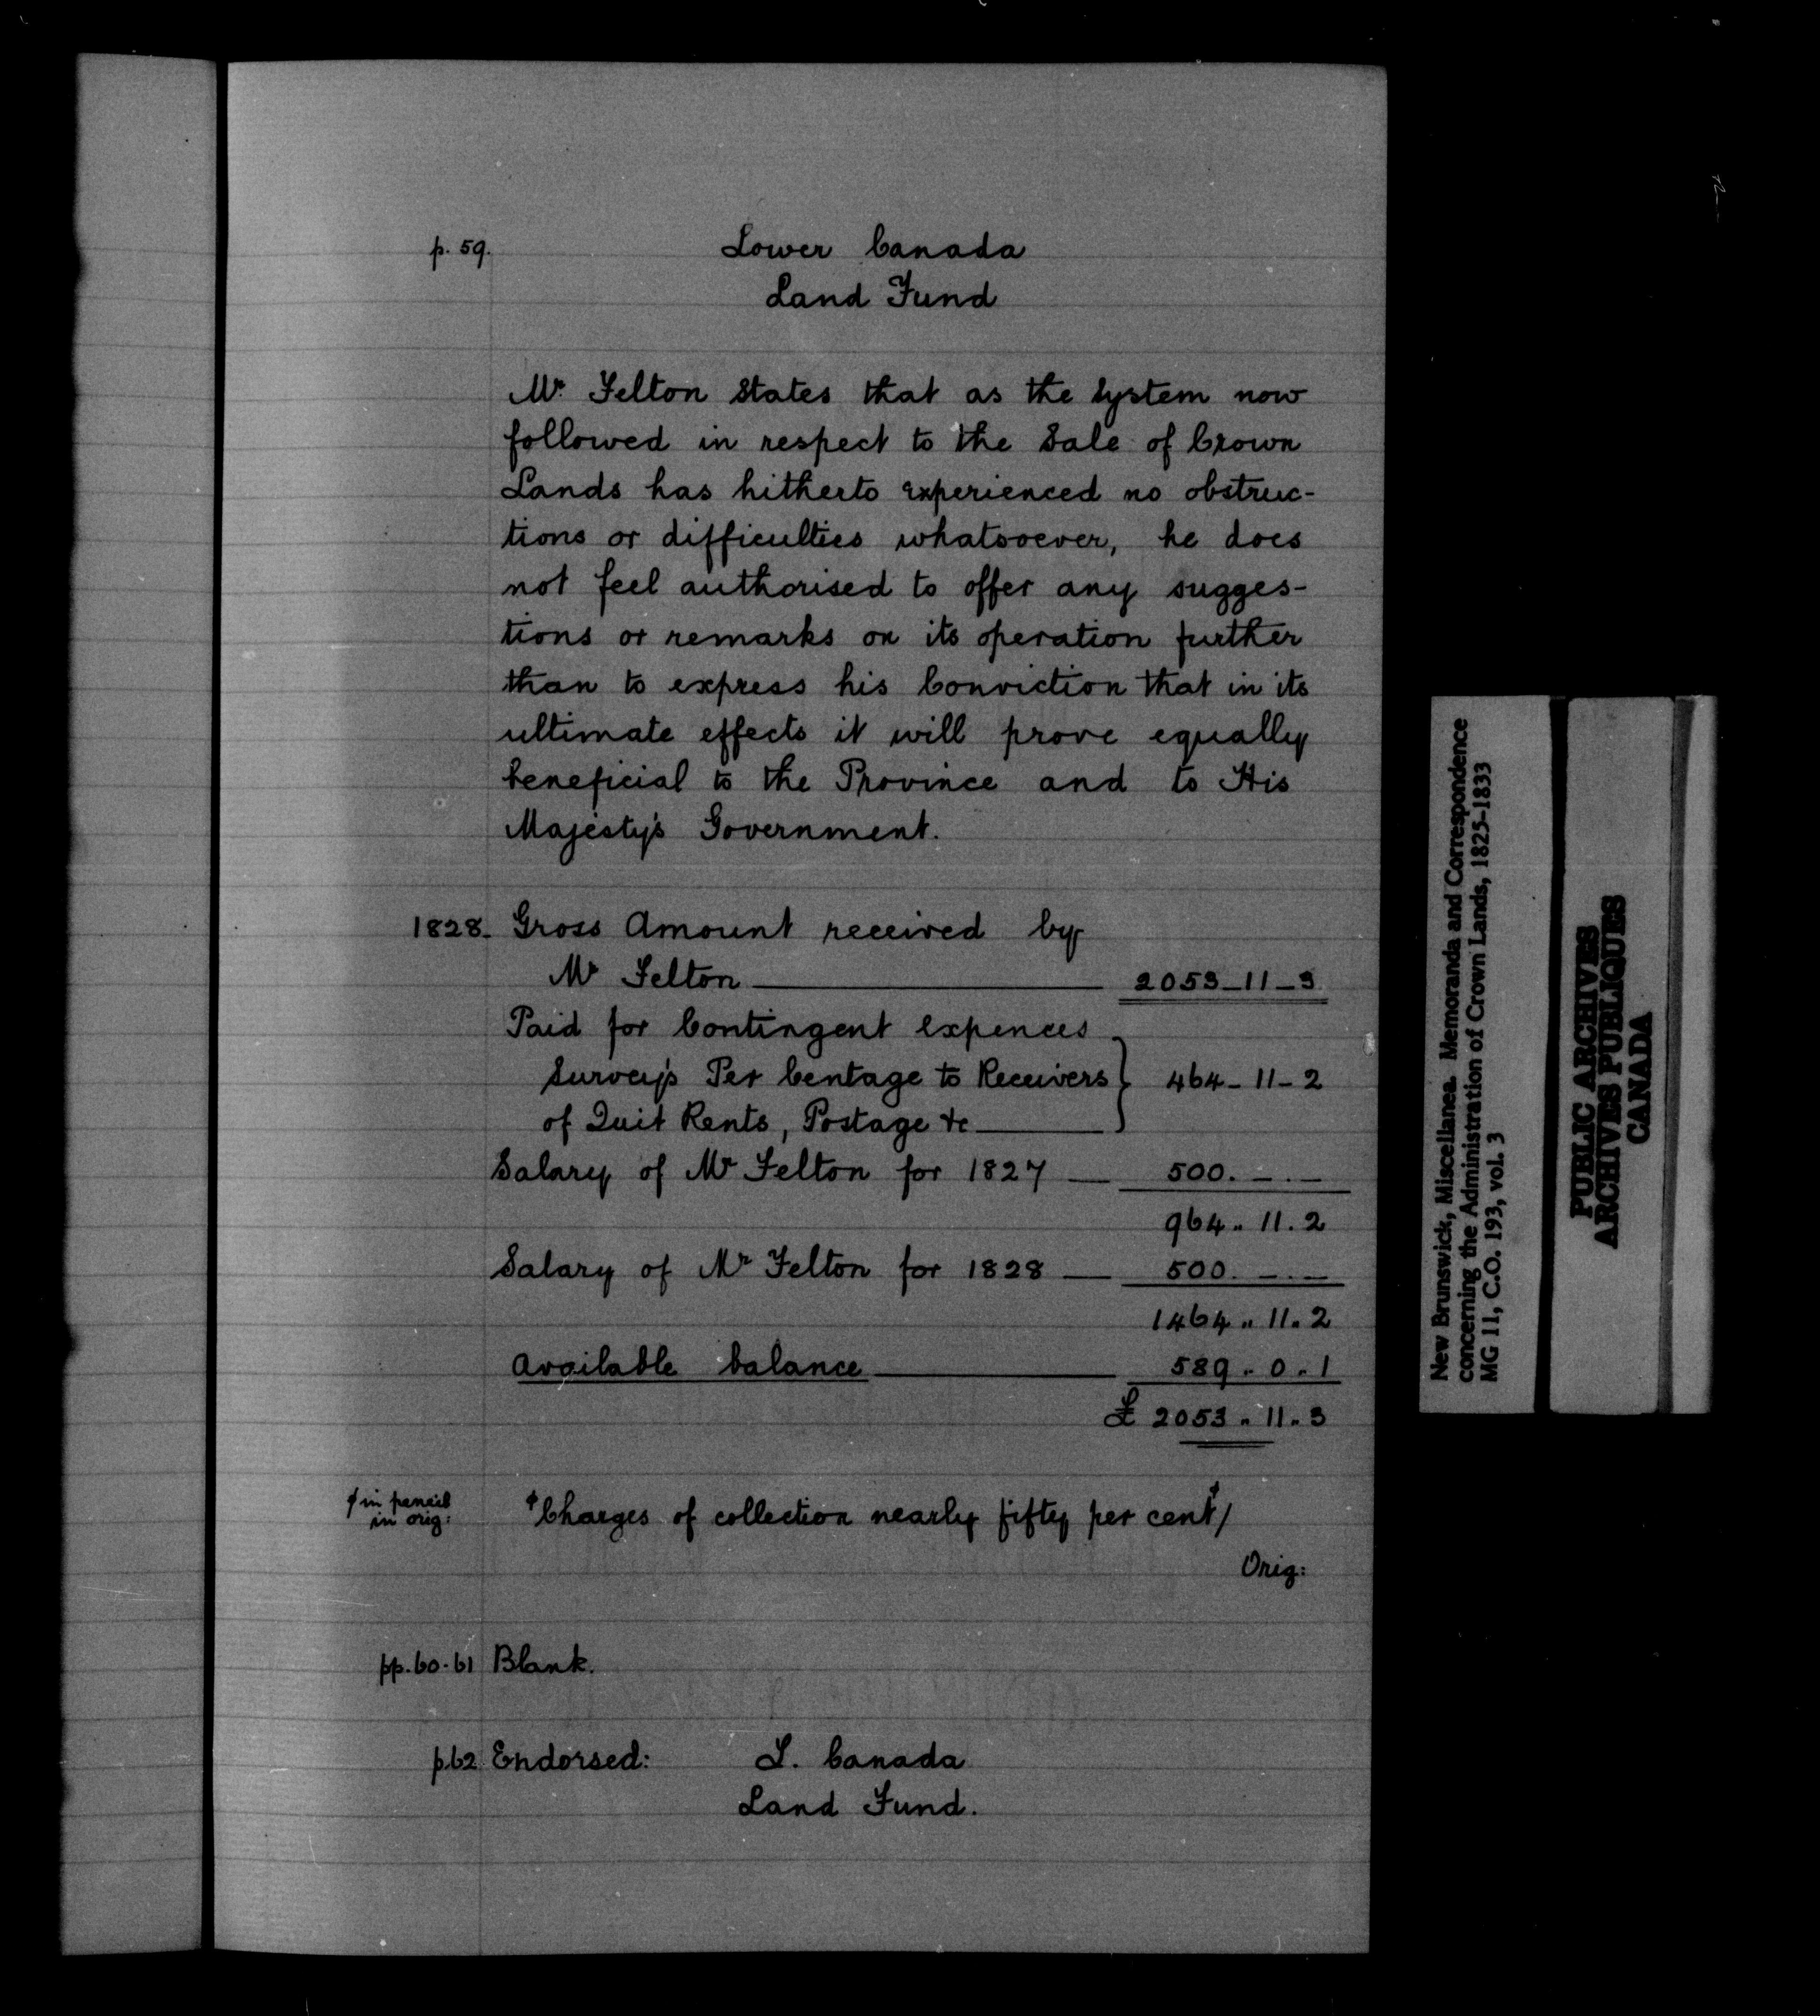 p. 59. Lower Canada
Land Fund
Mr. Felton States that as the System now
followed in respect to the Sale of Crown
Lands has hitherto experienced no obstruc-
tions or difficulties whatsoever, he does
not feel authorised to offer any sugges-
tions or remarks on its operation further
than to express his Conviction that in its
ultimate effects it will prove equally
beneficial to the Province and to His
Majesty's Government.
1828. Gross Amount received by
Mr Felton 2053_11_3
Paid for Contingent expences
Survey's Per Centage to Receivers 464_11_2
of Quit Rents, Postage &c
Salary of Mr Felton for 1827 500. _ . _
964.. 11. 2
Salary of Mr Felton for 1828 500. _ . _
1464 .. 11. 2
Available balance 589 .. 0 .. 1
£ 2053 .. 11. 3
ɸ in pencil
in orig:
ɸCharges of collection nearly fifty per centɸ/
Orig:
pp. 60-61 Blank.
p.62 Endorsed: L. Canada
Land Fund.
New Brunswick, Miscellanea. Memoranda and Correspondence
concerning the Administration of Crown Lands, 1825-1833
MG 11, C.O. 193, vol. 3
PUBLIC ARCHIVES
ARCHIVES PUBLIQUES
CANADA